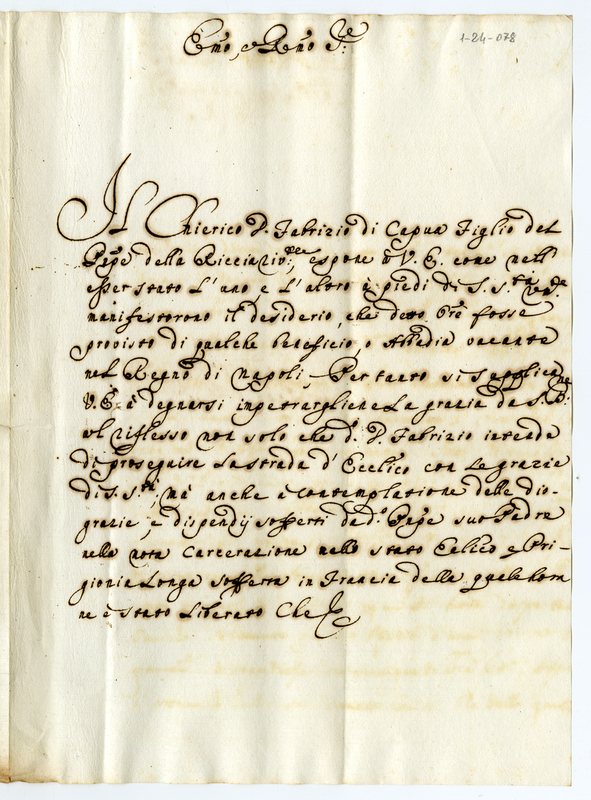 Emo, e Rmo Sre:
1-24-078
Il Chierico D. Fabrizio di Capua Figlio del
Pnpe della Riccia Div:, espone a V. E. come nell'
esser stato l'uno, e l'altro a' piedi di S. S.tà
manifestorono il desiderio, che detto fosse
provisto di qualche beneficio, o Abbadia vacante
nel Regno di Napoli, Per tanto si supplica
V. E. a degnarsi impetrargliene la grazia da S. B:
al riflesso non solo che d.o D. Fabrizio intenda
di proseguire la strada d'Ecclico con le grazie
di S. S.tà, ma anche a contemplatione delle dis-
grazie, e dispendij sofferti da d.o Pnpe suo Padre
nella nota Carcerazione nello stato e Pri-
gionia longa sofferta in Francia della quale hora
ne è stato liberato Che